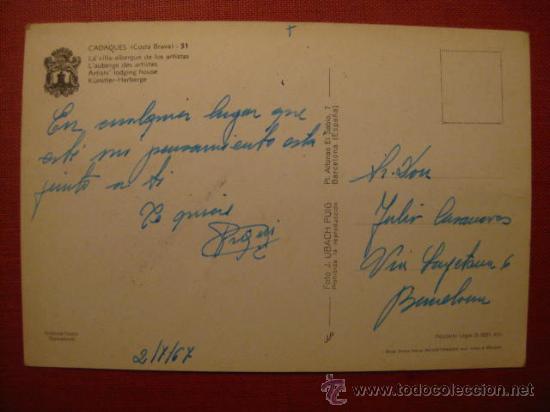 CADAQUES (Costa Brava) - 31
La villa-albergue de los artistas
L'auberge des artistes
Artists' lodging house
Künstler-Herberge
En cualquier lugar que
esté mi pensamiento está
junto a ti
Te quiere
2/7/67
Foto J. UBACH PUIG
Prohibida la reproducción
Pl. Alfonso El Sabio, 7
Barcelona (España)
Sr. Don
Julio Casanovas
Via Layetana 6
Barcelona
todocoleccion.net